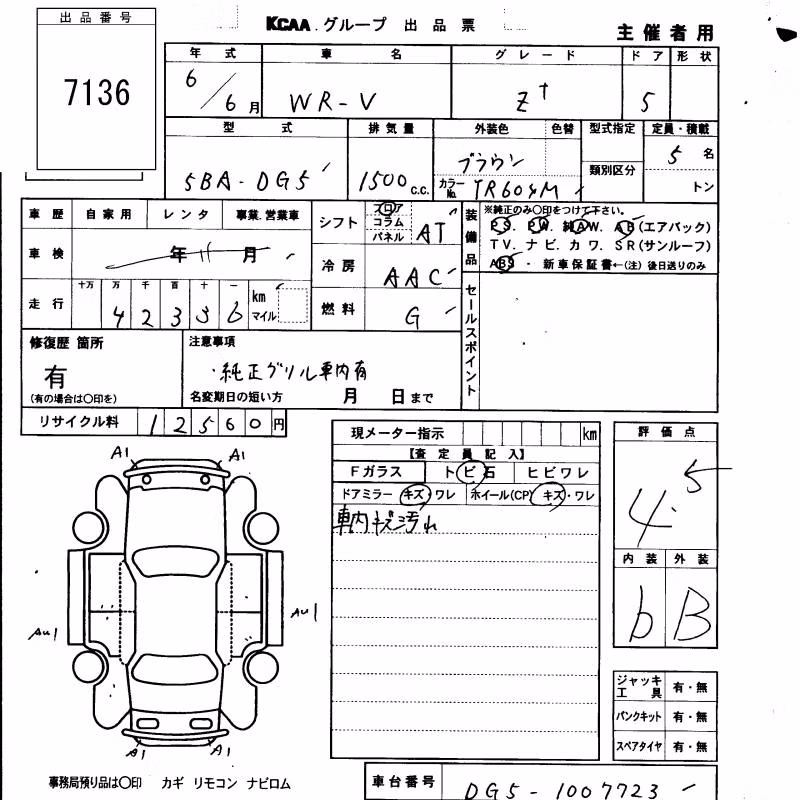 出品番号
7136
KCAA グループ 出品票
主催者用
年式 車名 グレード ドア 形状
6/6月 WR-V Z+ 5
型式 排気量 外装色 色替 型式指定 定員・積載
5BA-DG5 1500c.c. ブラウン 類別区分 5名
カラーNo. YR604M トン
車歴 自家用 レンタ 事業.営業車
シフト フロア コラム パネル AT
装備品 ※純正のみ○印をつけて下さい。
PS. PW. 純AW. AB(エアバック)
TV. ナビ. カワ. SR(サンルーフ)
ABS ・ 新車保証書←(注)後日送りのみ
車検 年 11月
冷房 AAC
走行 十万 万 千 百 十 一 km マイル
42336
燃料 G
セールスポイント
修復歴 箇所
有
(有の場合は○印を)
注意事項
・純正グリル車内有
名変期日の短い方 月 日まで
リサイクル料 12560円
現メーター指示 km
【査定員記入】
Fガラス トビ石 ヒビワレ
ドアミラー キズ・ワレ ホイール(CP) キズ・ワレ
車内キズ汚れ
評価点
4.5
内装 外装
b B
A1 A1
AU1 AU1
A1 A1
ジャッキ工具 有・無
パンクキット 有・無
スペアタイヤ 有・無
事務局預り品は○印 カギ リモコン ナビロム
車台番号 DG5-1007723